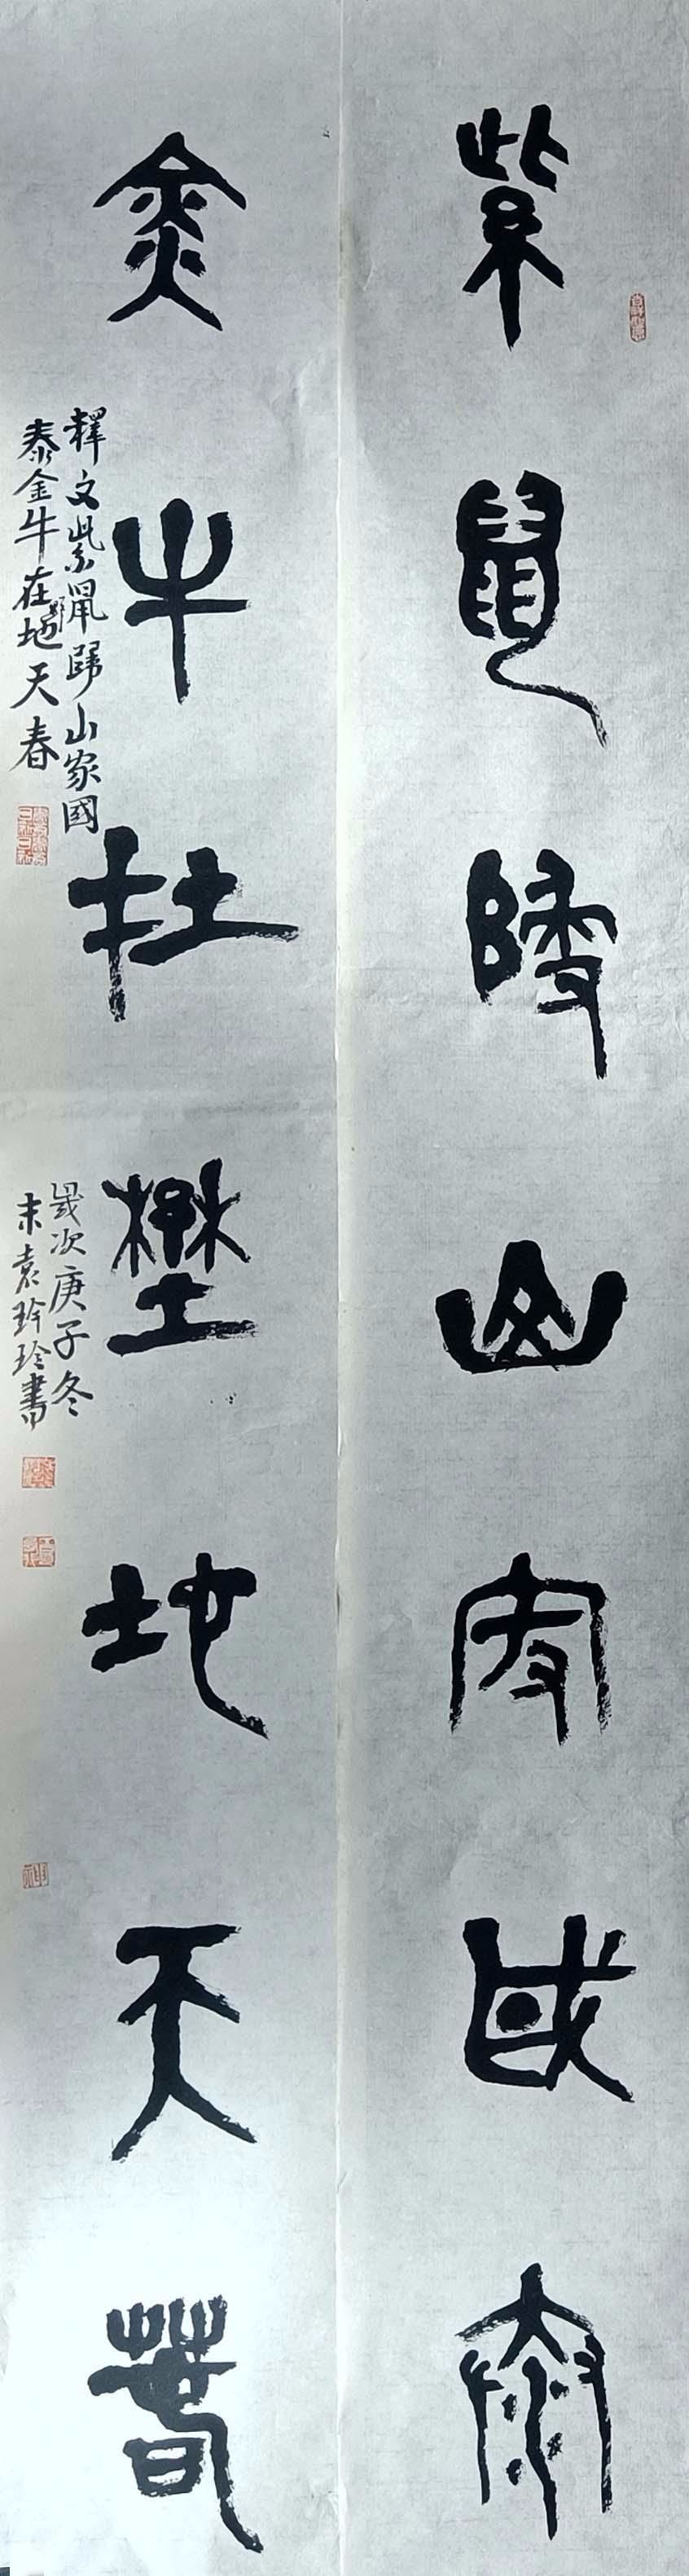 紫鼠歸山家國泰
金牛在野地天春
釋文紫鼠歸山家國
泰金牛在野地天春
歲次庚子冬
末袁玲玲書